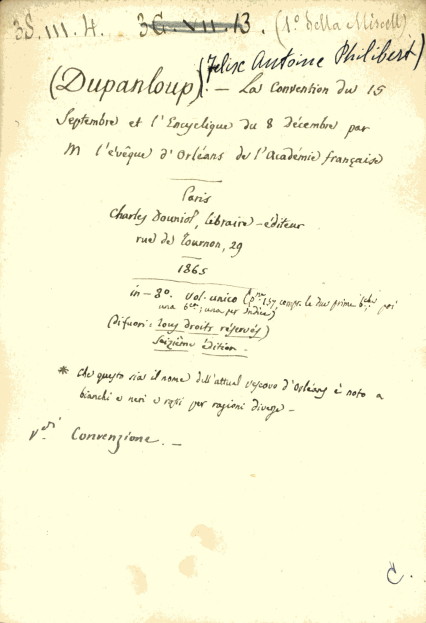 3S. III. 4. 3G. VII. 13. (1º della Miscell)
(Dupanloup) (Felix Antoine Philibert)
. — La Convention du 15
Septembre et l'Encyclique du 8 Décembre par
M l'évêque d'Orléans de l'Académie française
Paris
Charles Douniol, libraire-éditeur
rue de Tournon, 29
1865
in-8º. vol. unico (pne 157, compr. le due prime bche, poi
una bca; una per Indice)
(difuori: tous droits réservés)
Seizième édition.
* Che questo sia il nome dell'attual vescovo d'Orléans è noto a
bianchi e neri e rossi per ragioni diverse —
vedi Convenzione. —
C.